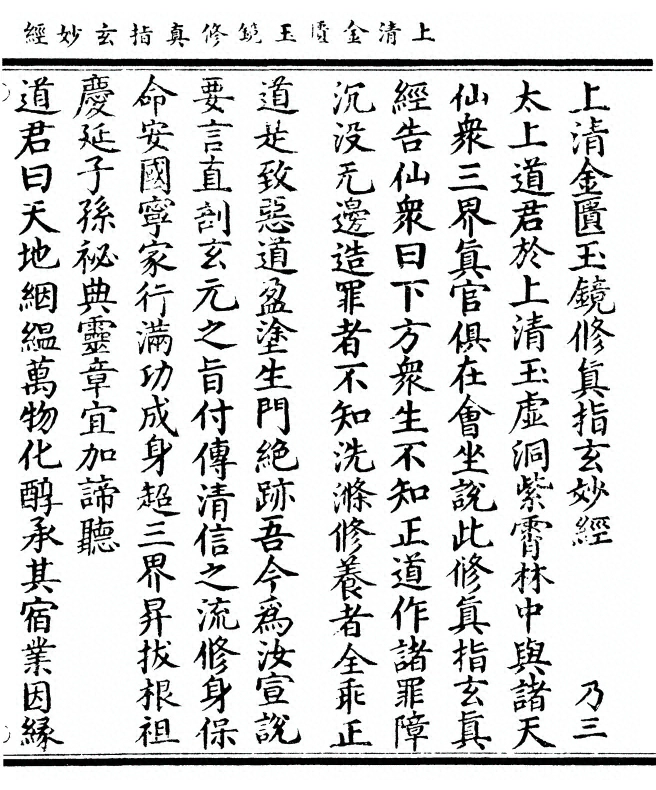 上清金匱玉鏡修真指玄妙經
上清金匱玉鏡修眞指玄妙經　乃三
太上道君於上清玉虛洞紫霄林中與諸天
仙衆三界眞官俱在會坐說此修眞指玄眞
經告仙衆曰下方衆生不知正道作諸罪障
沉没无邊造罪者不知洗滌修養者全乖正
道是致惡道盈塗生門絶跡吾今爲汝宣說
要言直剖玄元之旨付傳清信之流修身保
命安國寧家行滿功成身超三界昇拔根祖
慶延子孫祕典靈章宜加諦聽
道君曰天地絪緼萬物化醇承其宿業因緣